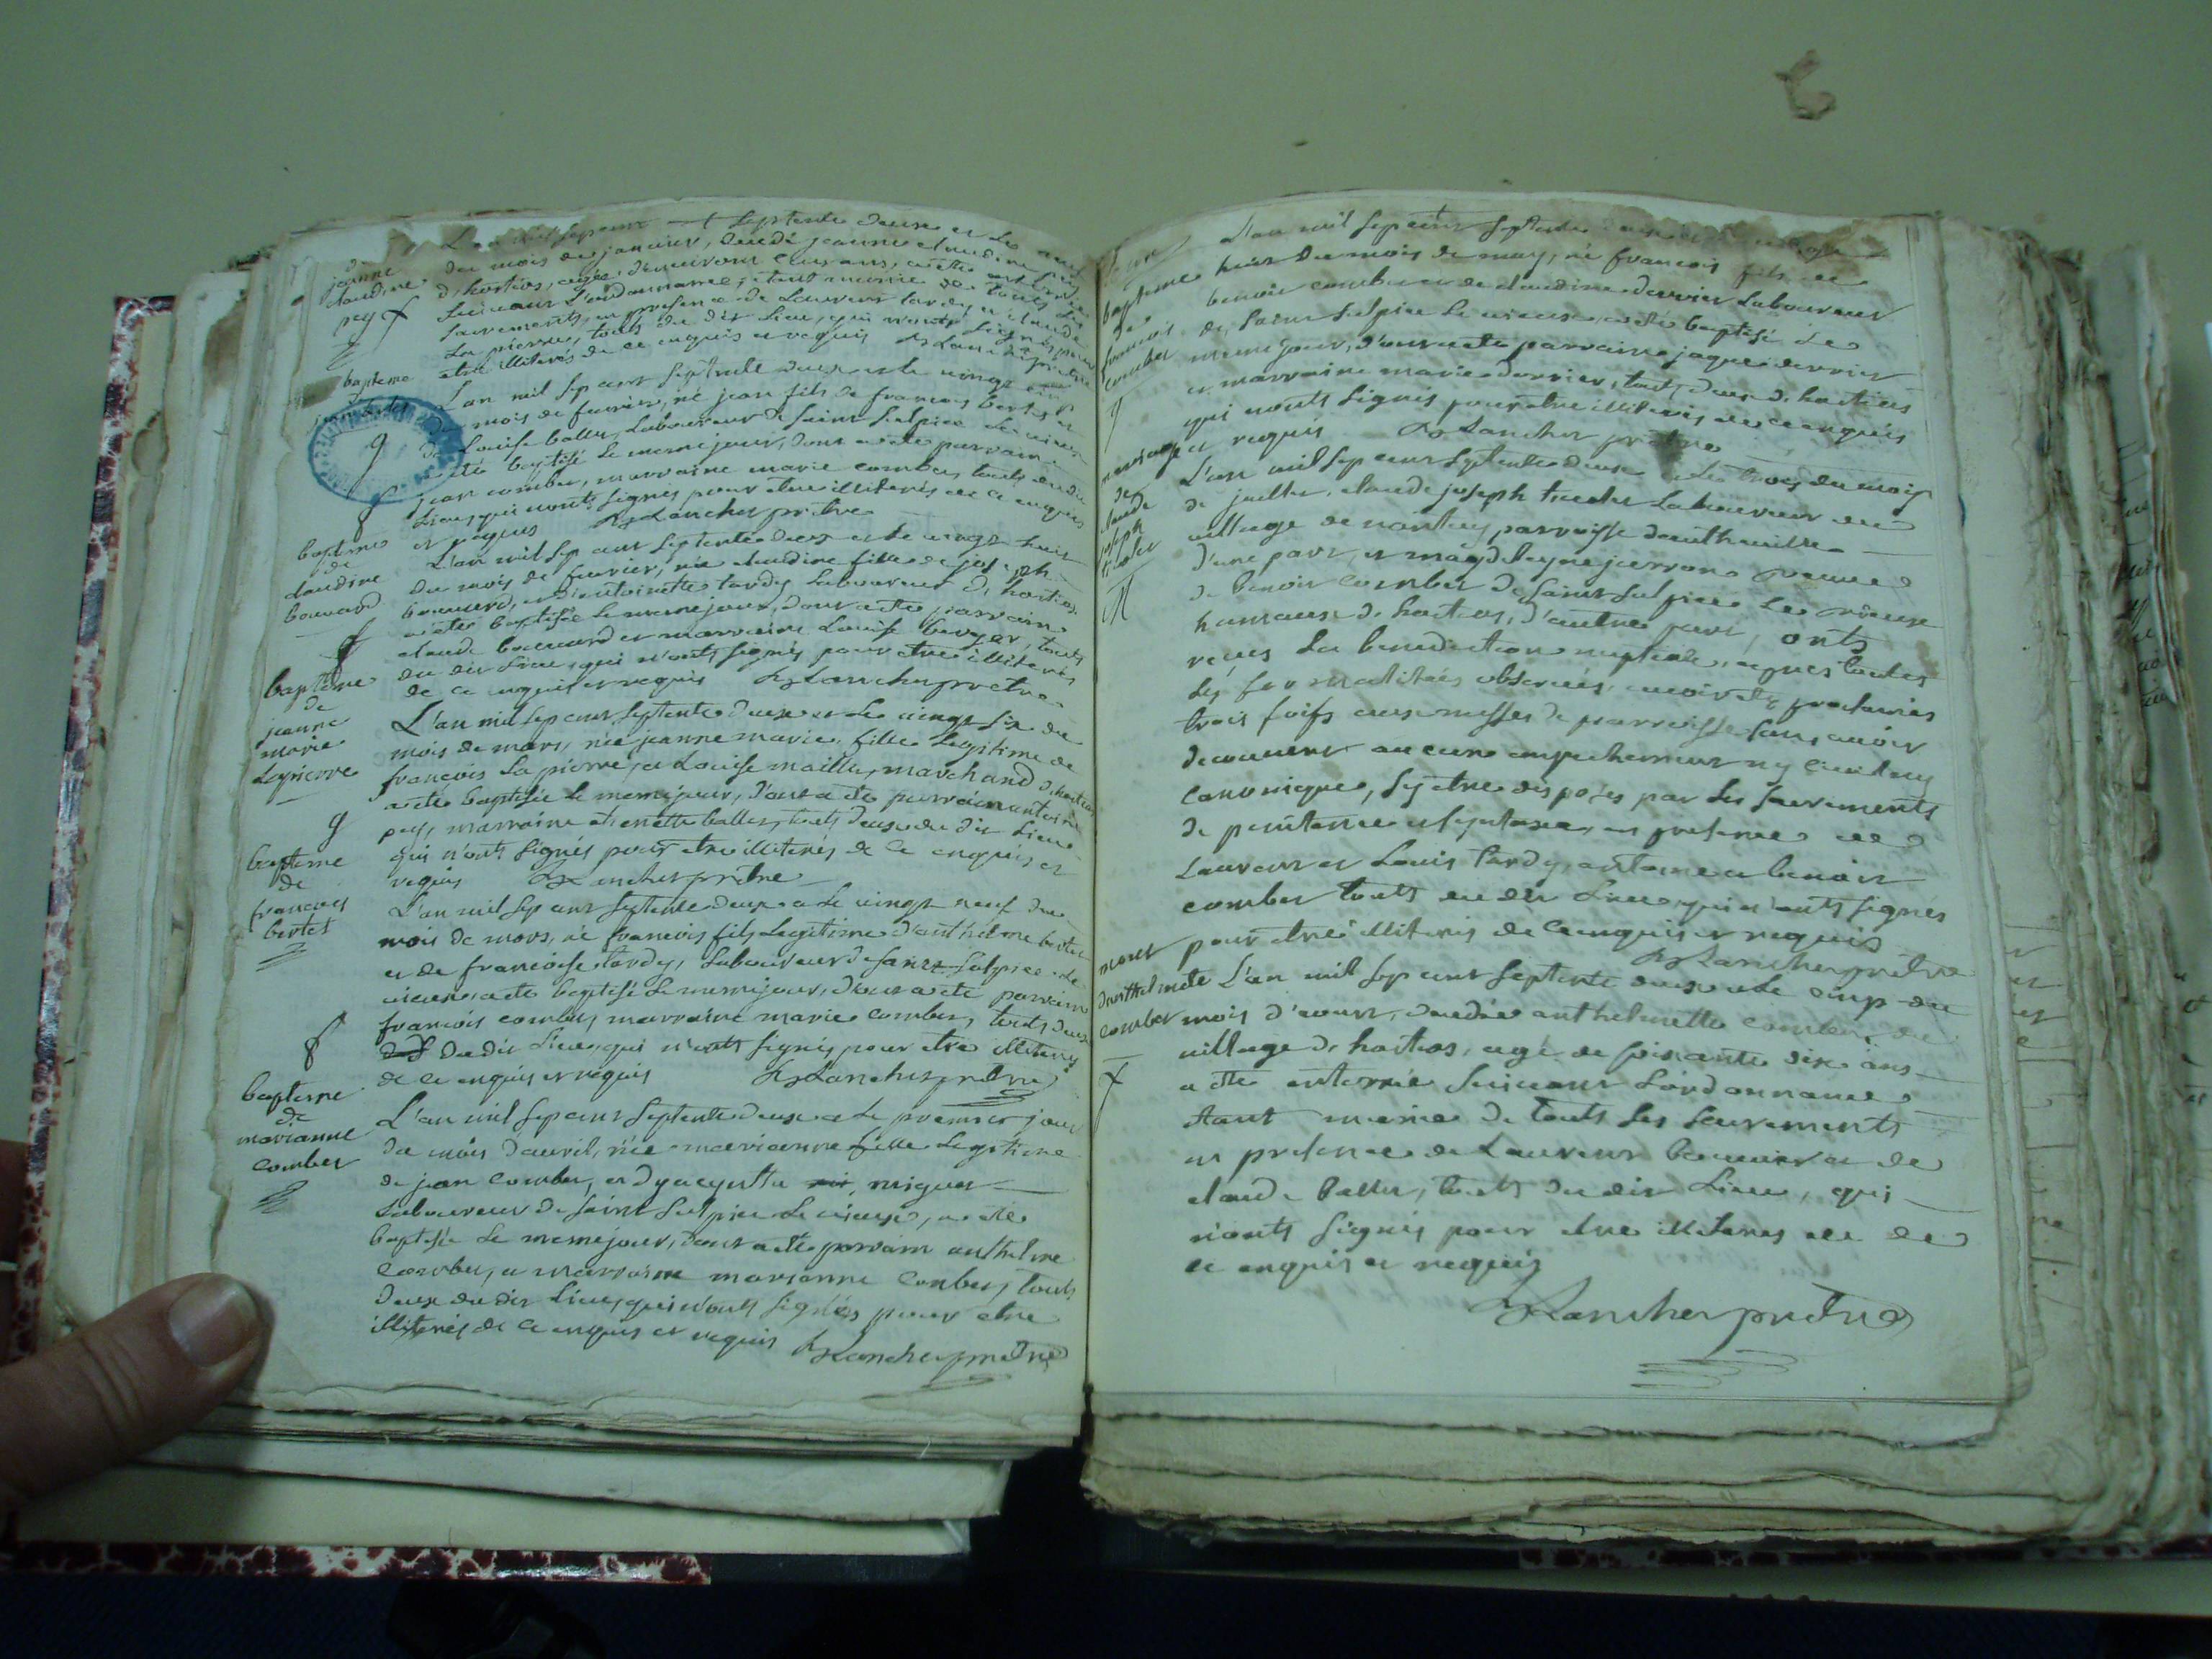 de
jeanne
claudine
pey
L'an mil sept cent septente deux et le neuf
du mois de janvier, decedé jeanne claudine pey
d'hostias, agée d'environ cinq ans, a etée enterrée
suivant l'ordonnance, etant munie de touts les
sacrements, en presence de Laurent tardy et claude
La pierre, touts du dit Lieu, qui n'onts signés pour
etre illiterés de ce enquis et requis
bapteme
de
L'an mil sept cent septente deux et le vingt
mois de fevrier, né jean fils de francois bertet et
de Louise ballet, Laboureur de saint sulpice le vieux
a été baptisé le meme jour, dont a été parrain
jean combet, marraine marie combet, touts du dit
Lieu, qui n'onts signés pour etre illiterés de ce enquis
et requis prêtre
9
baptème
de
claudine
bouvard
L'an mil sept cent septente deux et le vingt huit
du mois de fevrier, née claudine fille de joseph
bouvard, et d'antoinette tardy Laboureur d'hostias
a été baptisée le meme jour, dont a été parrain
claude bouvard et marraine Louise touts
du dit Lieu, qui n'onts signés pour etre illiterés
de ce enquis et requis prêtre
baptème
de
jeanne
marie
Lapierre
L'an mil sept cent septente deux et le vingt six du
mois de mars, née jeanne marie fille legitime de
françois La pierre, et Louise maillet, marchand d'hostias
a été baptisée le meme jour, dont a été parrain antoine
pey, marraine etienette ballet, touts deux du dit Lieu
qui n'onts signés pour etre illiterés de ce enquis et
requis prêtre
bapteme
de
francois
bertet
L'an mil sept cent septente deux et le vingt neuf du
mois de mars, né francois fils Legitime d'anthelme bertet
et de francoise tardy, Laboureur de saint sulpice le
vieux, a été baptisé le meme jour, dont a été parrain
francois combet, marraine marie combet, touts deux
du dit Lieu, qui n'onts signés pour etre illiterés
de ce enquis et requis prêtre
bapteme
de
marianne
combet
L'an mil sept cent septente deux et le premier jour
du mois d'avril, née marianne fille Legitime
de jean combet, et d'yacyntte miguet
Laboureur de saint sulpice le vieux, a été
baptisée le meme jour, dont a été parrain anthelme
combet, et marraine marianne combet, touts
deux du dit Lieu, qui n'onts signés pour etre
illiterés de ce enquis et requis prêtre
baptême
de
francois
combet
L'an mil sept cent septente deux
huit du mois de may, né francois fils de
benoit combet et de claudine derrier Laboureur
de saint sulpice le vieux, a été baptisé le
meme jour, dont a été parrain jaque derrier
et marraine marie derrier, touts deux d'hostias
qui n'onts signés pour etre illiterés de ce enquis
et requis prêtre
mariage
de
claude
joseph
L'an mil sept cent septente deux et le trois du mois
de juillet, claude joseph Laboureur du
village de nantuy, parroisse
d'une part, et magdeleyne veuve
de benoit combet de saint sulpice le vieux
hameaux d'hostias, d'autre part, onts
reçus la benediction nuptiale, apres toutes
les formalitées observées, avoir eté proclamés
trois foits aux messes de parroisse sans avoir
decouvert aucun empechement ny civil ny
canonique, s'y etre disposés par les sacrements
de penitence et en presence de
Laurent et Louis tardy, antoine et benoit
combet touts du dit Lieu, qui n'onts signés
pour etre illiterés de ce enquis et requis
prêtre
mort
d'anthelmette
combet
L'an mil sept cent septente deux et le cinq du
mois d'aout, decedée anthelmette combet, du
village d'hostias, agé de soisante six ans
a été enterrée suivant L'ordonnance
etant munie de touts les sacrements
en presence de Laurent et de
claude ballet, touts du dit Lieu, qui
n'onts signés pour etre illiterés de
ce enquis et requis
prêtre